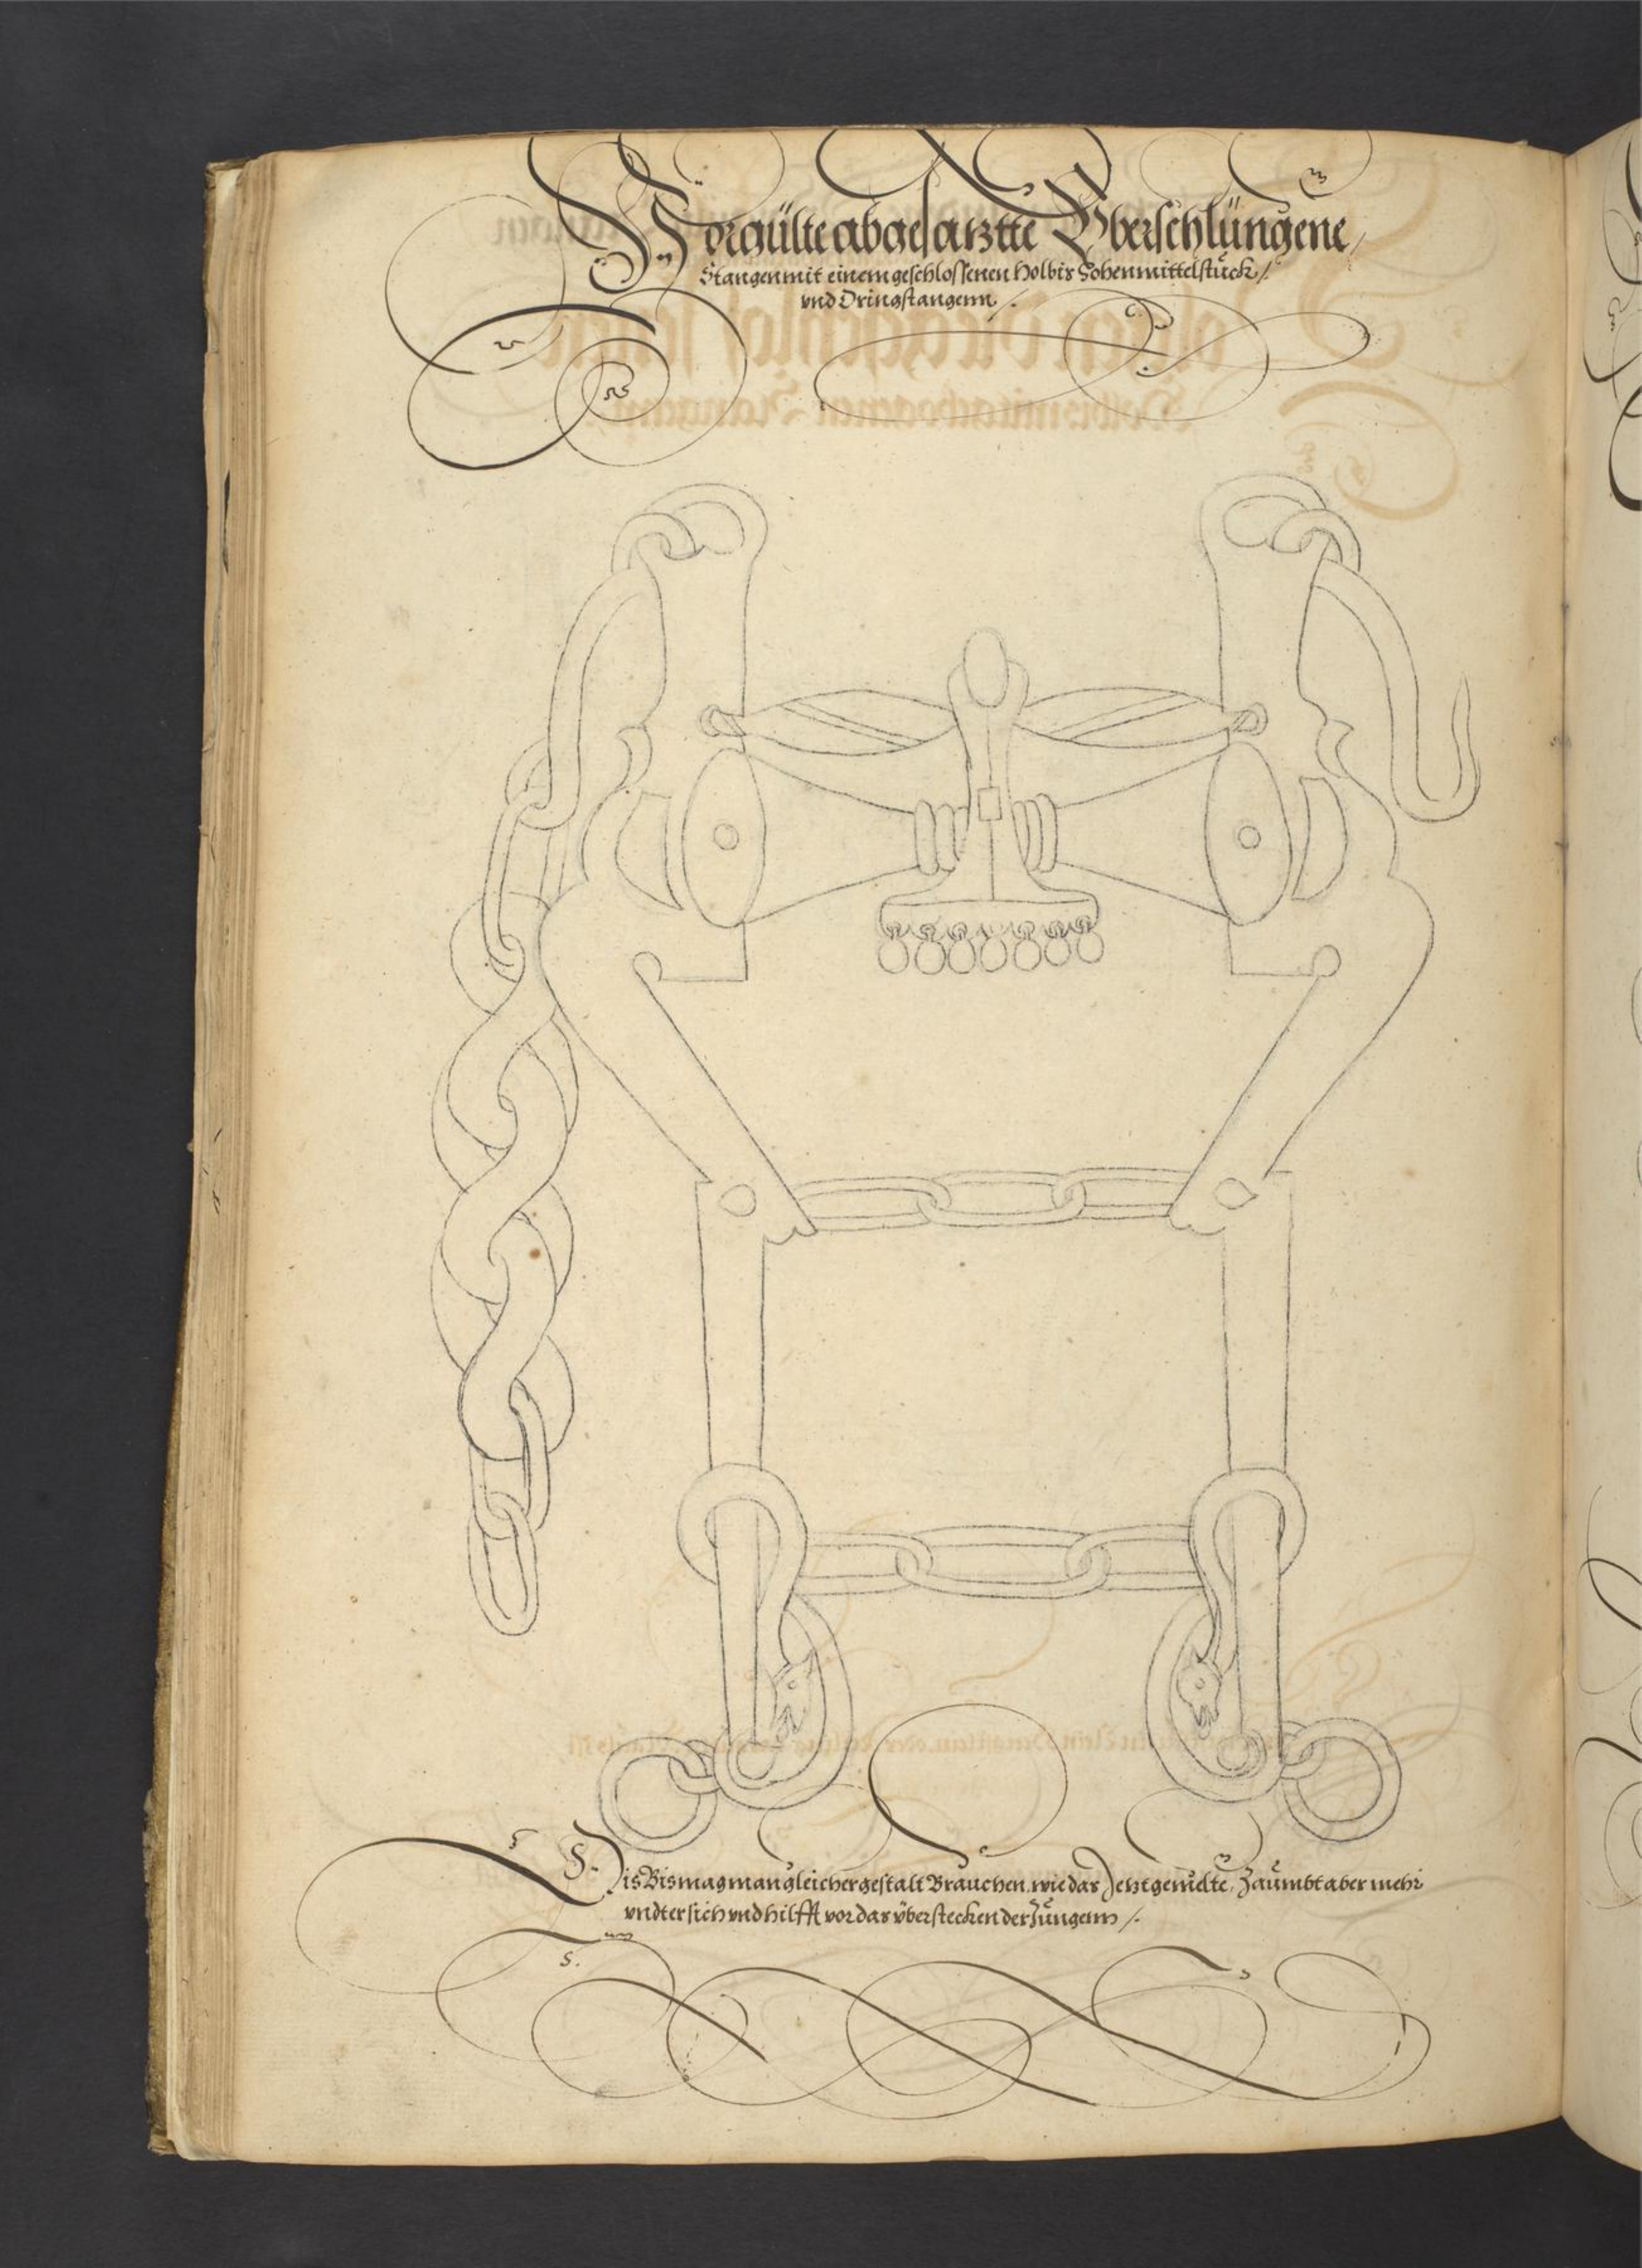 Vorgülte abgesatztte Vberschlüngene /
Stangen mit einem geschlossenen Holbis Hohen mittelstück /
vnd Dringstangenn /.
Dis Bis mag man gleicher gestalt Brauchen, wie das Jetzt gemelte, Zaümbt aber mehr
vndter sich vnd hilfft vor das überstecken der Züngenn /.